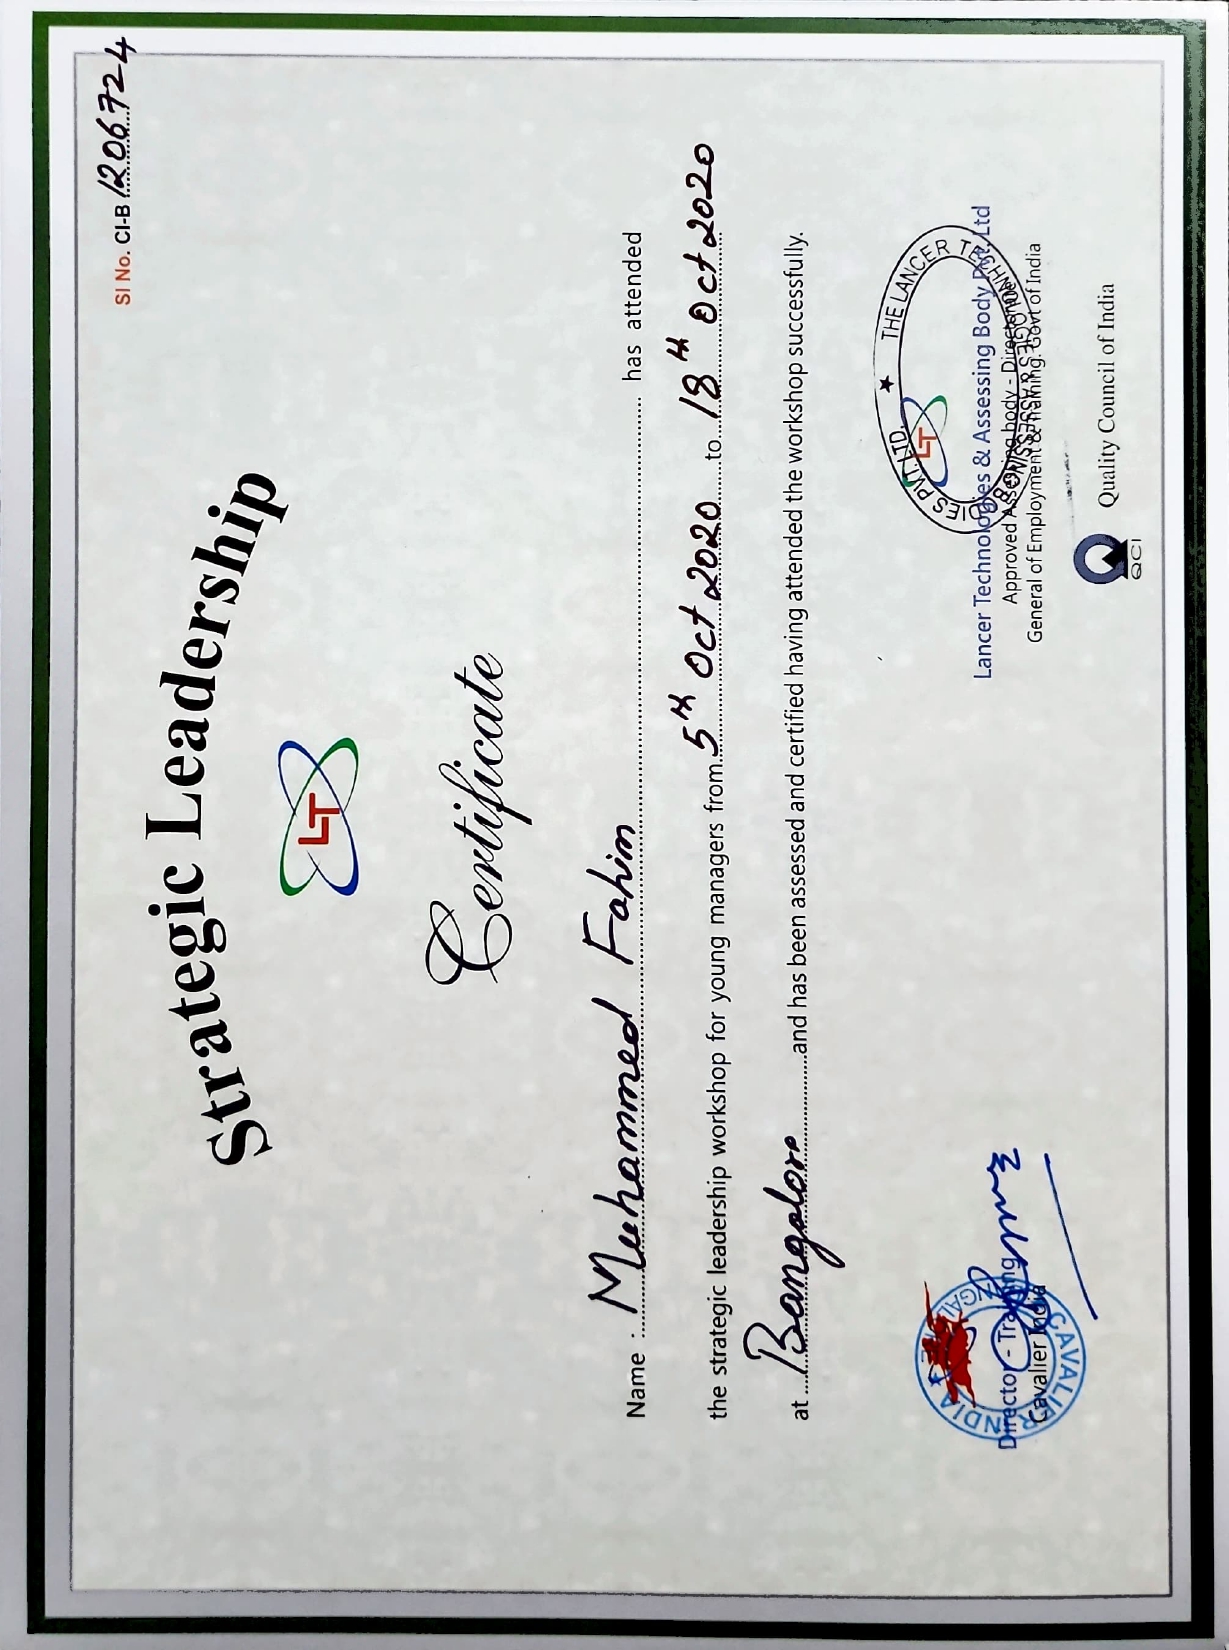 SI No. CI-B 1206724
Strategic Leadership
LT
Certificate
Name : Muhammed Fahim has attended
the strategic leadership workshop for young managers from 5th Oct 2020 to 18th Oct 2020
at Bangalore and has been assessed and certified having attended the workshop successfully.
CAVALIER INDIA ★ BANGALORE
Director - Training
Cavalier India
THE LANCER TECHNOLOGIES & ASSESSING BODIES PVT. LTD. ★
LT
Lancer Technologies & Assessing Body Pvt. Ltd
Approved Assessing body - Directorate
General of Employment & Training. Govt of India
QCI
Quality Council of India